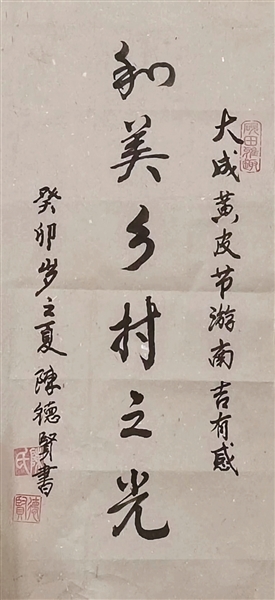 大成黄皮节游南吉有感
和美乡村之光
癸卯岁之夏陈德贤书